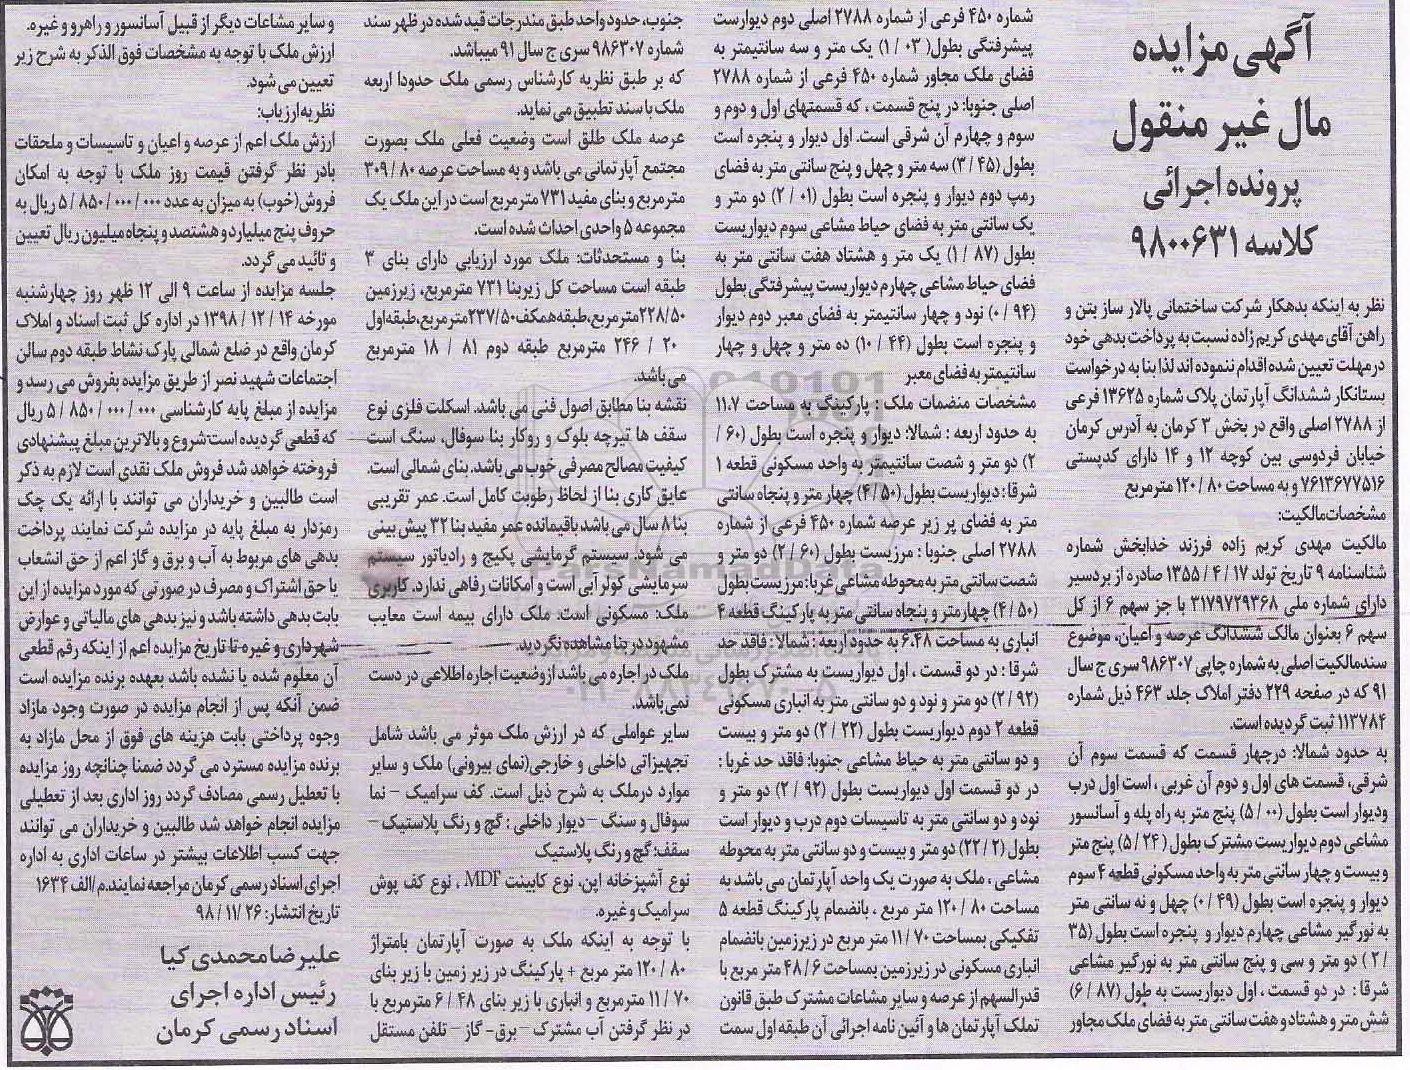 آگهی مزایده
مال غیر منقول
پرونده اجرائی
کلاسه ۹۸۰۰۶۳۱
نظر به اینکه بدهکار شرکت ساختمانی پالار ساز بتن و
راهن آقای مهدی کریم زاده نسبت به پرداخت بدهی خود
در مهلت تعیین شده اقدام ننموده اند لذا بنا به درخواست
بستانکار ششدانگ آپارتمان پلاک شماره ۱۳۶۲۵ فرعی
از ۲۷۸۸ اصلی واقع در بخش ۳ کرمان به آدرس کرمان
خیابان فردوسی بین کوچه ۱۲ و ۱۴ دارای کدپستی
۷۶۱۳۶۷۷۵۱۶ و به مساحت ۸۰ / ۱۲۰ مترمربع
مشخصات مالکیت:
مالکیت مهدی کریم زاده فرزند خدابخش شماره
شناسنامه ۹ تاریخ تولد ۱۷ / ۴ / ۱۳۵۵ صادره از بردسیر
دارای شماره ملی ۳۱۷۹۷۲۹۳۶۸ با جز سهم ۶ از کل
سهم ۶ بعنوان مالک ششدانگ عرصه و اعیان، موضوع
سندمالکیت اصلی به شماره چاپی ۹۸۶۳۰۷ سری ج سال
۹۱ که در صفحه ۲۲۹ دفتر املاک جلد ۴۶۳ ذیل شماره
۱۱۳۷۸۴ ثبت گردیده است.
به حدود شمالا: درچهار قسمت که قسمت سوم آن
شرقی، قسمت های اول و دوم آن غربی ، است اول درب
ودیوار است بطول (۰۰ / ۵) پنج متر به راه پله و آسانسور
مشاعی دوم دیواریست مشترک بطول (۲۴ / ۵) پنج متر
و بیست و چهار سانتی متر به واحد مسکونی قطعه ۴ سوم
دیوار و پنجره است بطول (۴۹ / ۰) چهل و نه سانتی متر
به نورگیر مشاعی چهارم دیوار و پنجره است بطول (۳۵
/ ۲ ) دو متر و سی و پنج سانتی متر به نورگیر مشاعی
شرقا : در دو قسمت ، اول دیواریست به طول (۸۷ / ۶)
شش متر و هشتاد و هفت سانتی متر به فضای ملک مجاور
شماره ۴۵۰ فرعی از شماره ۲۷۸۸ اصلی دوم دیوارست
پیشرفتگی بطول( ۰۳ / ۱) یک متر و سه سانتیمتر به
فضای ملک مجاور شماره ۴۵۰ فرعی از شماره ۲۷۸۸
اصلی جنوبا: در پنج قسمت ، که قسمتهای اول و دوم و
سوم و چهارم آن شرقی است. اول دیوار و پنجره است
بطول (۴۵ / ۳) سه متر و چهل و پنج سانتی متر به فضای
رمپ دوم دیوار و پنجره است بطول (۰۱ / ۲) دو متر و
یک سانتی متر به فضای حیاط مشاعی سوم دیواریست
بطول (۸۷ / ۱) یک متر و هشتاد هفت سانتی متر به
فضای حیاط مشاعی چهارم دیواریست پیشرفتگی بطول
(۹۴ / ۰) نود و چهار سانتیمتر به فضای معبر دوم دیوار
و پنجره است بطول (۴۴ / ۱۰) ده متر و چهل و چهار
سانتیمتر به فضای معبر
مشخصات منضمات ملک : پارکینگ به مساحت ۱۱.۷
به حدود اربعه : شمالا: دیوار و پنجره است بطول (۶۰ /
۲) دو متر و شصت سانتیمتر به واحد مسکونی قطعه ۱
شرقا: دیواریست بطول (۵۰ / ۴) چهار متر و پنجاه سانتی
متر به فضای پر زیر عرصه شماره ۴۵۰ فرعی از شماره
۲۷۸۸ اصلی جنوبا : مرزیست بطول (۶۰ / ۲) دو متر و
شصت سانتی متر به محوطه مشاعی غربا: مرزیست بطول
(۵۰ / ۴) چهارمتر و پنجاه سانتی متر به پارکینگ قطعه ۴
انباری به مساحت ۶.۴۸ به حدود اربعه : شمالا : فاقد حد
شرقا : در دو قسمت ، اول دیواریست به مشترک بطول
(۹۲ / ۲) دو متر و نود و دو سانتی متر به انباری مسکونی
قطعه ۲ دوم دیواریست بطول (۲۲ / ۲) دو متر و بیست
و دو سانتی متر به حیاط مشاعی جنوبا: فاقد حد غربا :
در دو قسمت اول دیواریست بطول (۹۲ / ۲) دو متر و
نود و دو سانتی متر به تاسیسات دوم درب و دیوار است
بطول (۲ / ۲۲) دو متر و بیست و دو سانتی متر به محوطه
مشاعی ، ملک به صورت یک واحد آپارتمان می باشد به
مساحت ۸۰ / ۱۲۰ متر مربع ، بانضمام پارکینگ قطعه ۵
تفکیکی بمساحت ۷۰ / ۱۱ متر مربع در زیرزمین بانضمام
انباری مسکونی در زیرزمین بمساحت ۶ / ۴۸ متر مربع با
قدرالسهم از عرصه و سایر مشاعات مشترک طبق قانون
تملک آپارتمان ها و آئین نامه اجرائی آن طبقه اول سمت
جنوب، حدود واحد طبق مندرجات قید شده در ظهر سند
شماره ۹۸۶۳۰۷ سری ج سال ۹۱ میباشد.
که بر طبق نظریه کارشناس رسمی ملک حدودا اربعه
ملک با سند تطبیق می نماید.
عرصه ملک طلق است وضعیت فعلی ملک بصورت
مجتمع آپارتمانی می باشد و به مساحت عرصه ۸۰ / ۳۰۹
مترمربع و بنای مفید ۷۳۱ مترمربع است در این ملک یک
مجموعه ۵ واحدی احداث شده است.
بنا و مستحدثات: ملک مورد ارزیابی دارای بنای ۳
طبقه است مساحت کل زیربنا ۷۳۱ مترمربع، زیرزمین
۲۲۸/۵۰مترمربع،طبقه همکف ۲۳۷/۵۰مترمربع،طبقه اول
۲۰ / ۲۴۶ مترمربع طبقه دوم ۸۱ / ۱۸ مترمربع
می باشد.
نقشه بنا مطابق اصول فنی می باشد. اسکلت فلزی نوع
سقف ها تیرچه بلوک و روکار بنا سوفال، سنگ است
کیفیت مصالح مصرفی خوب می باشد. بنای شمالی است.
عایق کاری بنا از لحاظ رطوبت کامل است. عمر تقریبی
بنا ۸ سال می باشد باقیمانده عمر مفید بنا ۳۲ پیش بینی
می شود. سیستم گرمایشی پکیج و رادیاتور سیستم
سرمایشی کولر آبی است و امکانات رفاهی ندارد. کاربری
ملک: مسکونی است. ملک دارای بیمه است معایب
مشهود در بنا مشاهده نگردید.
ملک در اجاره می باشد از وضعیت اجاره اطلاعی در دست
نمی باشد.
سایر عواملی که در ارزش ملک موثر می باشد شامل
تجهیزاتی داخلی و خارجی(نمای بیرونی) ملک و سایر
موارد درملک به شرح ذیل است. کف سرامیک – نما
سوفال و سنگ – دیوار داخلی : گچ و رنگ پلاستیک –
سقف: گچ و رنگ پلاستیک
نوع آشپزخانه اپن، نوع کابینت MDF ، نوع کف پوش
سرامیک و غیره.
با توجه به اینکه ملک به صورت آپارتمان بامتراژ
۸۰ / ۱۲۰ متر مربع + پارکینگ در زیر زمین با زیر بنای
۷۰ / ۱۱ مترمربع و انباری با زیر بنای ۴۸ / ۶ مترمربع با
در نظر گرفتن آب مشترک – برق- گاز – تلفن مستقل
و سایر مشاعات دیگر از قبیل آسانسور و راهرو و غیره.
ارزش ملک با توجه به مشخصات فوق الذکر به شرح زیر
تعیین می شود.
نظریه ارزیاب:
ارزش ملک اعم از عرصه و اعیان و تاسیسات و ملحقات
بادر نظر گرفتن قیمت روز ملک با توجه به امکان
فروش(خوب) به میزان به عدد ۰۰۰ / ۰۰۰ / ۸۵۰ / ۵ ریال به
حروف پنج میلیارد و هشتصد و پنجاه میلیون ریال تعیین
و تائید می گردد.
جلسه مزایده از ساعت ۹ الی ۱۲ ظهر روز چهارشنبه
مورخه ۱۴ / ۱۲ / ۱۳۹۸ در اداره کل ثبت اسناد و املاک
کرمان واقع در ضلع شمالی پارک نشاط طبقه دوم سالن
اجتماعات شهید نصر از طریق مزایده بفروش می رسد و
مزایده از مبلغ پایه کارشناسی ۰۰۰ / ۰۰۰ / ۸۵۰ / ۵ ریال
که قطعی گردیده است شروع و بالاترین مبلغ پیشنهادی
فروخته خواهد شد فروش ملک نقدی است لازم به ذکر
است طالبین و خریداران می توانند با ارائه یک چک
رمزدار به مبلغ پایه در مزایده شرکت نمایند پرداخت
بدهی های مربوط به آب و برق و گاز اعم از حق انشعاب
یا حق اشتراک و مصرف در صورتی که مورد مزایده از این
بابت بدهی داشته باشد و نیز بدهی های مالیاتی و عوارض
شهرداری و غیره تا تاریخ مزایده اعم از اینکه رقم قطعی
آن معلوم شده یا نشده باشد بعهده برنده مزایده است
ضمن آنکه پس از انجام مزایده در صورت وجود مازاد
وجوه پرداختی بابت هزینه های فوق از محل مازاد به
برنده مزایده مسترد می گردد ضمنا چنانچه روز مزایده
با تعطیل رسمی مصادف گردد روز اداری بعد از تعطیلی
مزایده انجام خواهد شد طالبین و خریداران می توانند
جهت کسب اطلاعات بیشتر در ساعات اداری به اداره
اجرای اسناد رسمی کرمان مراجعه نمایند.م/الف ۱۶۳۴
تاریخ انتشار: ۲۶ / ۱۱ / ۹۸
علیرضا محمدی کیا
رئیس اداره اجرای
اسناد رسمی کرمان
ParsNamadData